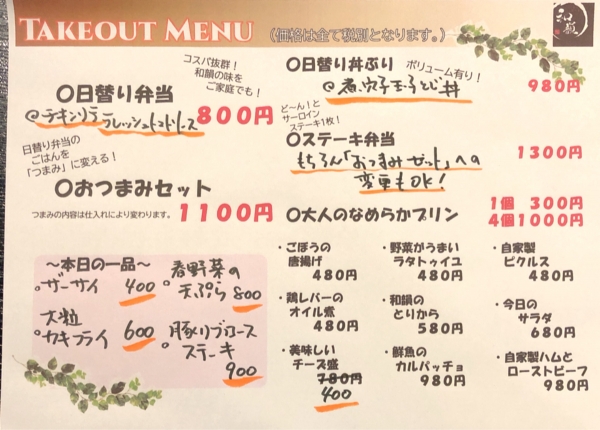 TAKEOUT MENU (価格は全て税別となります。)
和韻
コスパ抜群!
和韻の味を
ご家庭でも!
○日替り弁当
800円
@チキンソテーフレッシュトマトソース
日替り弁当の
ごはんを
「つまみ」に変える!
○おつまみセット
つまみの内容は仕入れにより変わります。
1100円
○日替り丼ぶり
ボリューム有り!
@煮穴子玉子とじ丼
980円
ど〜ん!と
サーロイン
ステーキ1枚!
○ステーキ弁当
1300円
もちろん「おつまみセット」への
変更もOK!
○大人のなめらかプリン
1個 300円
4個1000円
〜本日の一品〜
ザーサイ 400
春野菜の
天ぷら 800
大粒
カキフライ 600
豚リブロース
ステーキ
900
・ごぼうの
唐揚げ
480円
・野菜がうまい
ラタトゥイユ
480円
・自家製
ピクルス
480円
・鶏レバーの
オイル煮
480円
・和韻の
とりから
580円
・今日の
サラダ
680円
・美味しい
チーズ盛
780円
400
・鮮魚の
カルパッチョ
980円
・自家製ハムと
ローストビーフ
980円